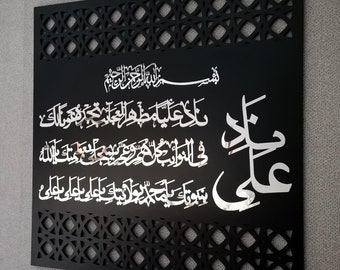 بسم الله الرحمن الرحيم
ناد علي
ناد عليا مظهر العجائب تجده عونا لك
في النوائب كل هم وغم سينجلي بعظمتك يا الله
بنبوتك يا محمد بولايتك يا علي يا علي يا علي